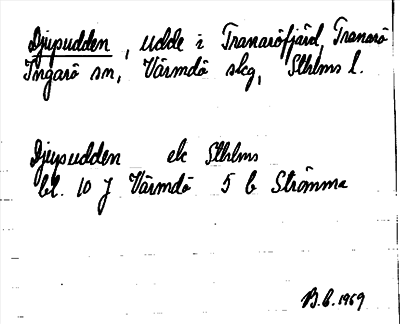 Djupudden, udde i Tranaröfjärd, Tranarö
Ingarö sn, Värmdö skg, Sthlms l.
Djupudden ek Sthlms
bl. 10 J Värmdö 5 b Strömma
B.C. 1969